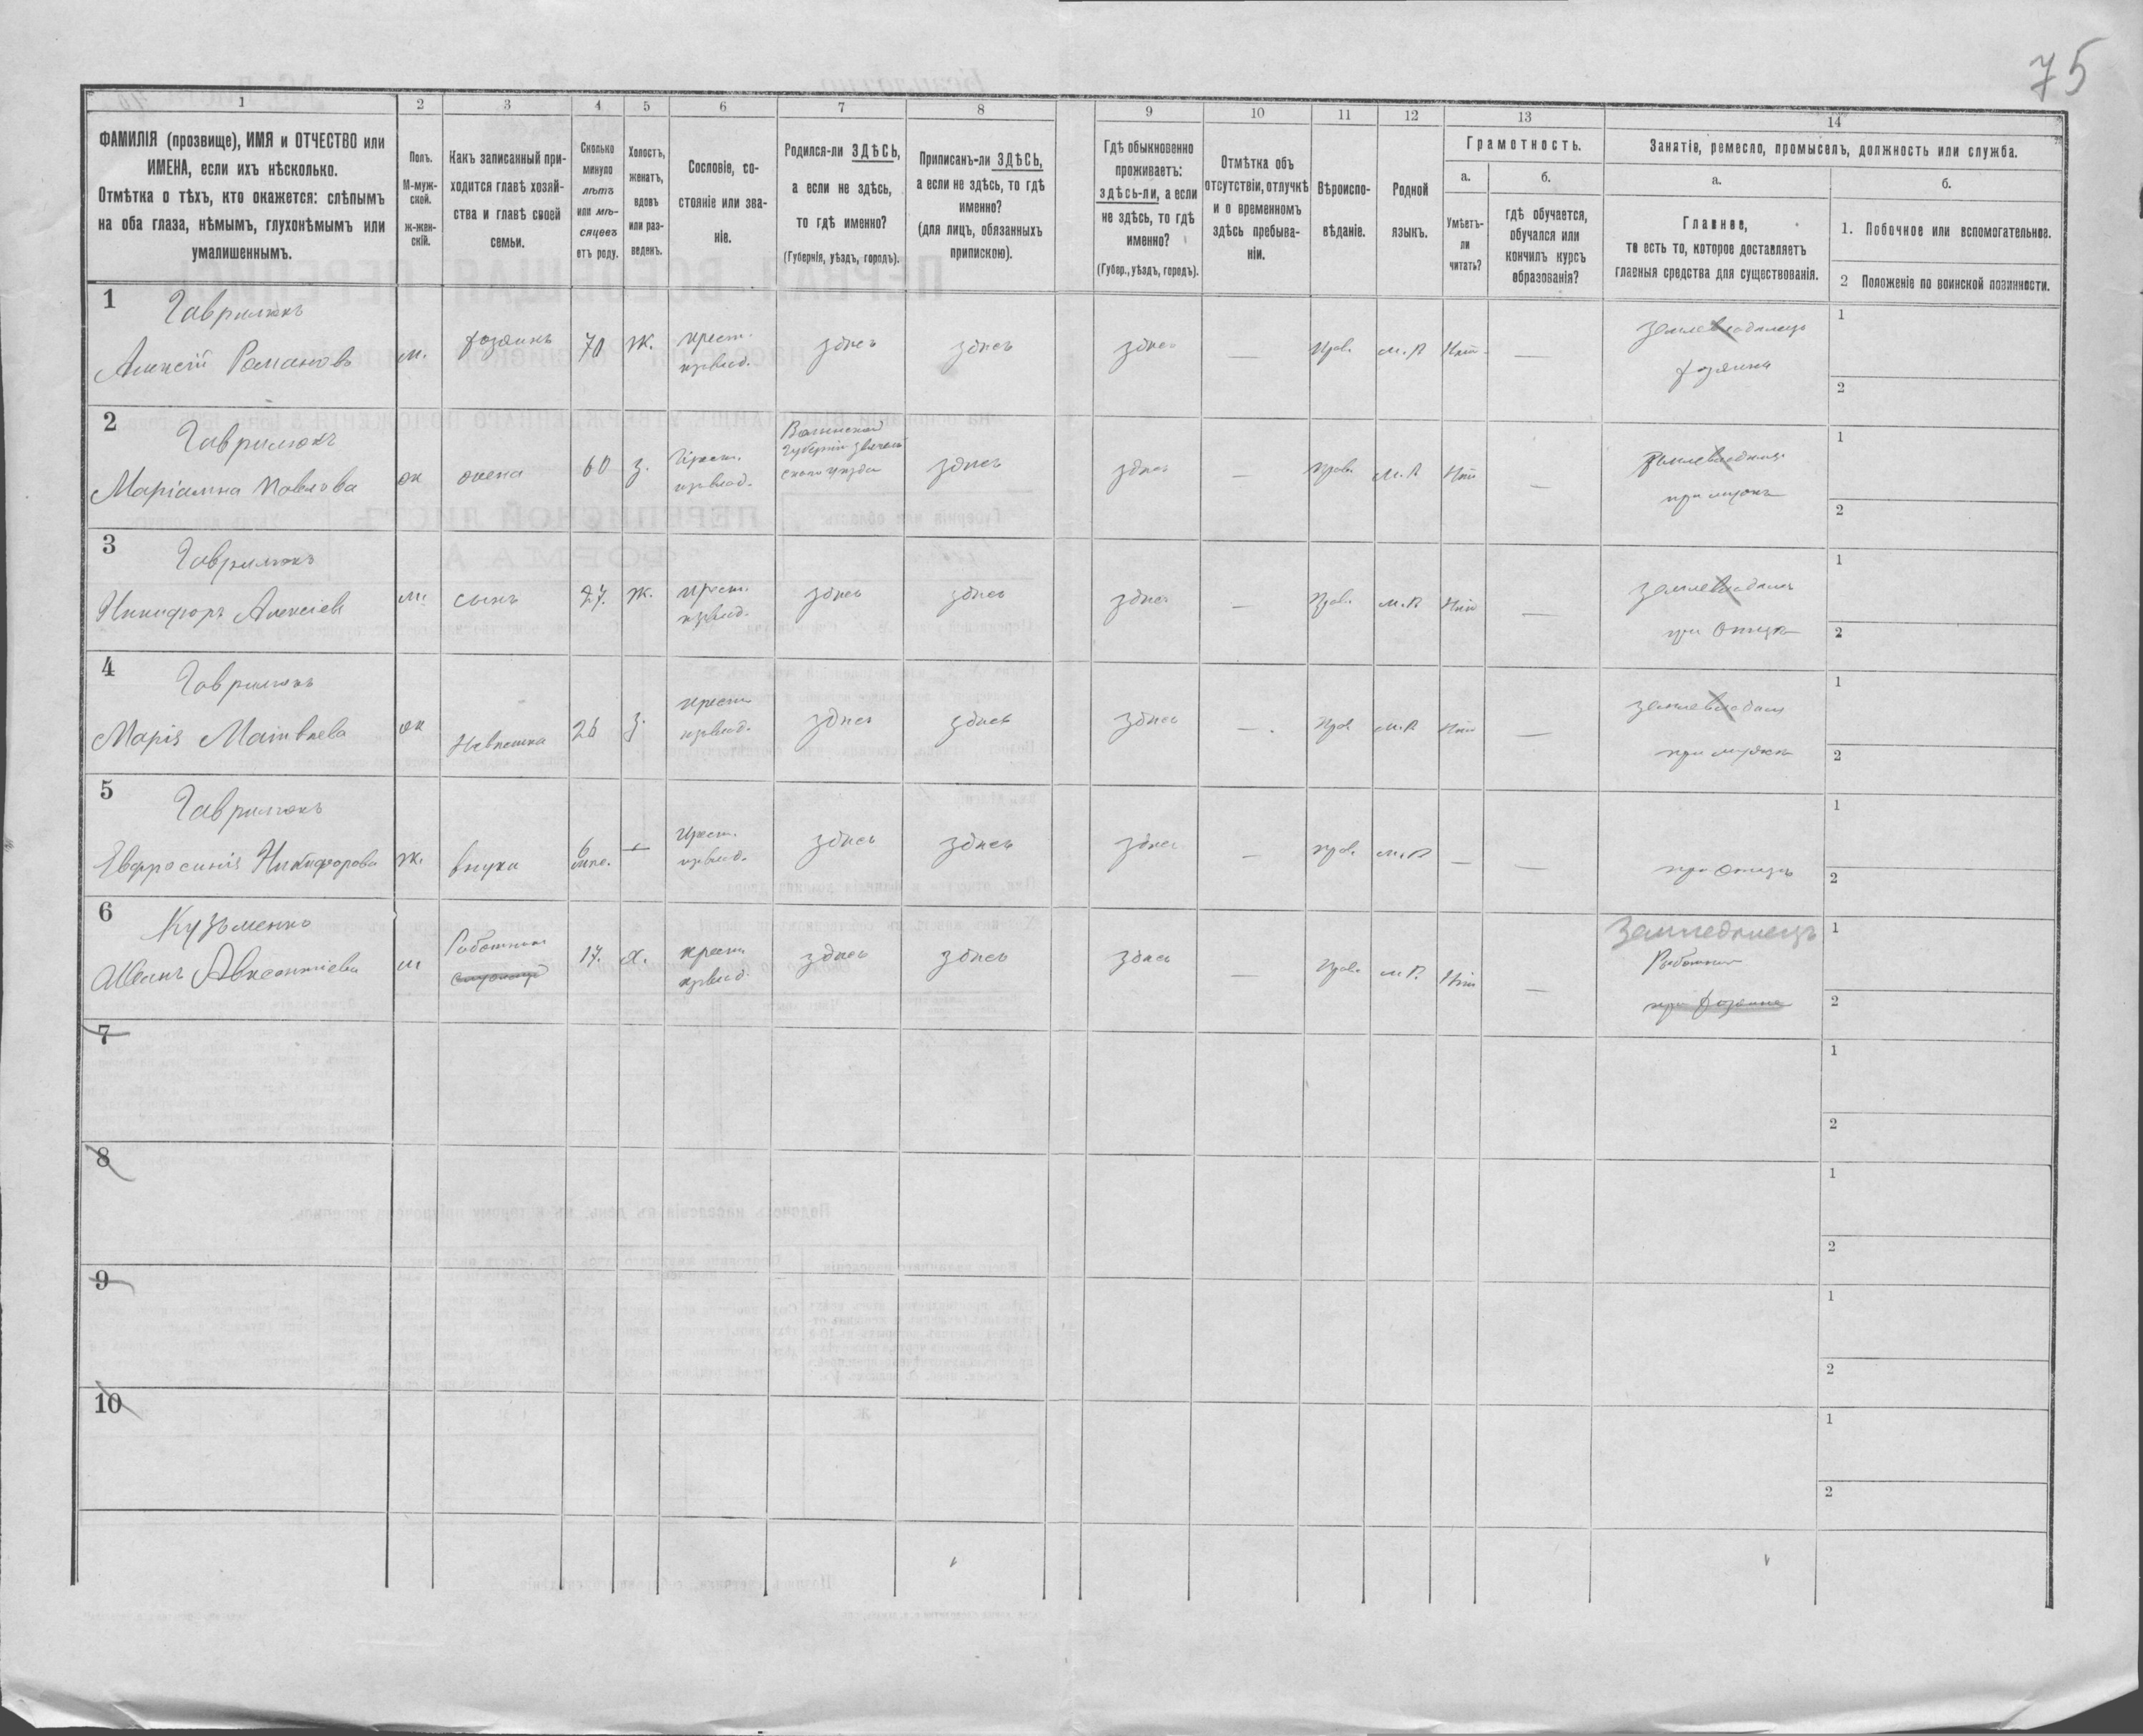 75
1
2
3
4
5
6
7
8
9
10
11
12
13
14
ФАМИЛІЯ (прозвище), ИМЯ и ОТЧЕСТВО или
ИМЕНА, если ихъ нѣсколько.
Отмѣтка о тѣхъ, кто окажется: слѣпымъ
на оба глаза, нѣмымъ, глухонѣмымъ или
умалишеннымъ.
Полъ.
М-муж-
ской.
ж-жен-
скій.
Какъ записанный при-
ходится главѣ хозяй-
ства и главѣ своей
семьи.
Сколько
минуло
лѣтъ
или мѣ-
сяцевъ
отъ роду.
Холостъ,
женатъ,
вдовъ
или раз-
веденъ.
Сословіе, со-
стояніе или зва-
ніе.
Родился-ли ЗДѢСЬ,
а если не здѣсь,
то гдѣ именно?
(Губернія, уѣздъ, городъ).
Приписанъ-ли ЗДѢСЬ,
а если не здѣсь, то гдѣ
именно?
(для лицъ, обязанныхъ
припискою).
Гдѣ обыкновенно
проживаетъ:
здѣсь-ли, а если
не здѣсь, то гдѣ
именно?
(Губер., уѣздъ, городъ).
Отмѣтка объ
отсутствіи, отлучкѣ
и о временномъ
здѣсь пребыва-
ніи.
Вѣроиспо-
вѣданіе.
Родной
языкъ.
Грамотность.
а.
Умѣетъ-
ли
читать?
б.
гдѣ обучается,
обучался или
кончилъ курсъ
образованія?
Занятіе, ремесло, промыселъ, должность или служба.
а.
Главное,
то есть то, которое доставляетъ
главныя средства для существованія.
б.
1. Побочное или вспомогательное.
2 Положеніе по воинской повинности.
1 Гаврилюкъ
Алексѣй Романовъ
м. хозяинъ 70 ж. крест. здѣсь здѣсь здѣсь — Прав. м.Р Нѣт —
землевладелец
хозяинъ
1
2
2 Гаврилюкъ
Маріамна Павлова
ж жена 60 з. Крест.
Волынской
Губерніи
уѣзда
здѣсь здѣсь — Прав. м.Р Нѣт —
1
2
3 Гаврилюкъ
Никифоръ Алексіев
м. сынъ 27. ж. крест. здѣсь здѣсь здѣсь — Прав. м.Р Нѣт —
при Отцѣ
1
2
4 Гаврилюкъ
Марія Матвѣева
ж Невѣстка 26 з. крест здѣсь здѣсь здѣсь — Прав м.Р Нѣт —
при мужѣ
1
2
5 Гаврилюкъ
Евфросинія Никифорова
ж. внука 6 мѣс. — Крест. здѣсь здѣсь здѣсь — прав. м.Р — —
при Отцѣ
1
2
6 Кузьменко
Иванъ Авксентіевъ
м Работникъ 17. х. крест здѣсь здѣсь здѣсь — Прав. м Р. Нѣт —
Земледѣлецъ
Работник
при хозяине
1
2
7
1
2
8
1
2
9
1
2
10
1
2